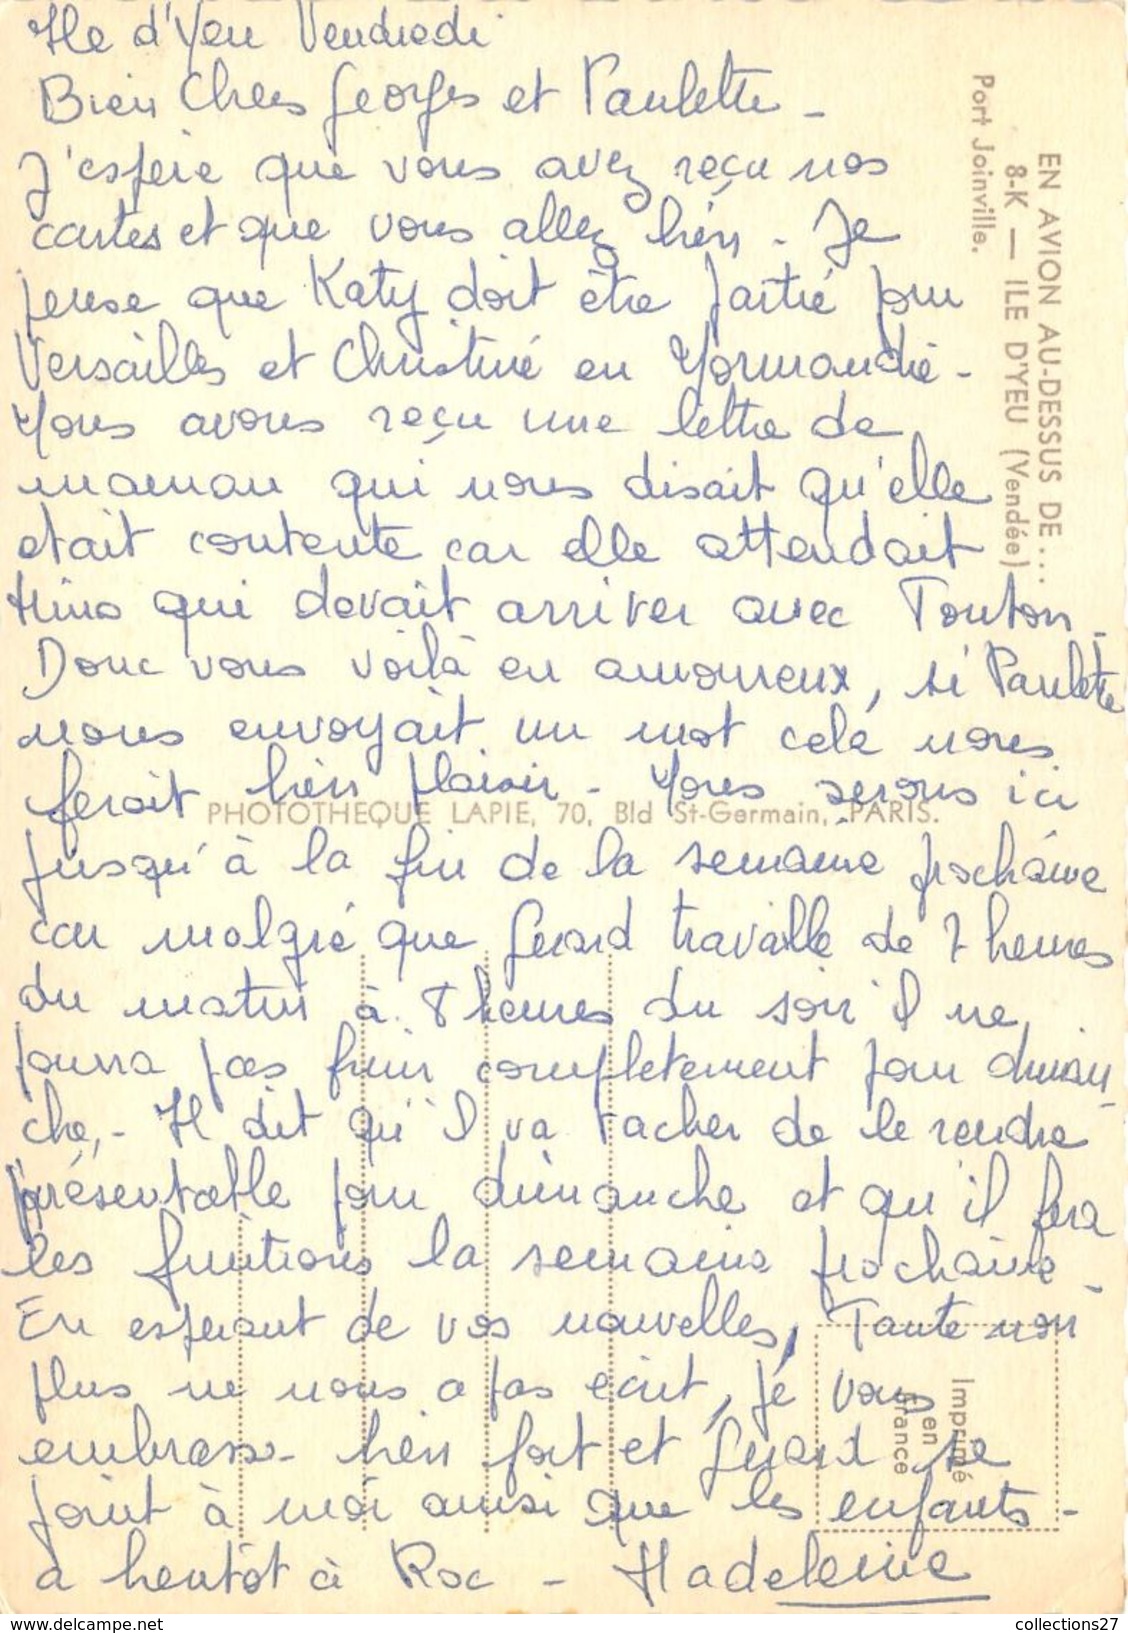 Ile d'Yeu Vendredi
Bien Chers Georges et Paulette -
J'espère que vous avez reçu nos
cartes et que vous allez bien - Je
pense que Katy doit être partie pour
Versailles et Christine en Normandie -
Nous avons reçu une lettre de
maman qui nous disait qu'elle
etait contente car elle attendait
qui devait arriver avec Tonton -
Donc vous voilà en amoureux, si Paulette
nous envoyait un mot cela nous
ferait bien plaisir - Nous serons ici
jusqu'à la fin de la semaine prochaine
car malgré que Gerard travaille de 7 heures
du matin à 8 heures du soir il ne
pourra pas finir completement pour diman-
che, - Il dit qu'il va tacher de le rendre
présentable pour dimanche et qu'il fera
les finitions la semaine prochaine -
En esperant de vos nouvelles, Tante non
plus ne nous a pas ecrit, je vous
embrasse bien fort et Gerard se
joint à moi ainsi que les enfants -
a bientôt à Roc - Madeleine
EN AVION AU-DESSUS DE...
8-K — ILE D'YEU (Vendée)
Port Joinville.
PHOTOTHEQUE LAPIE, 70, Bld St-Germain, PARIS.
Imprimé
en
France
collections27